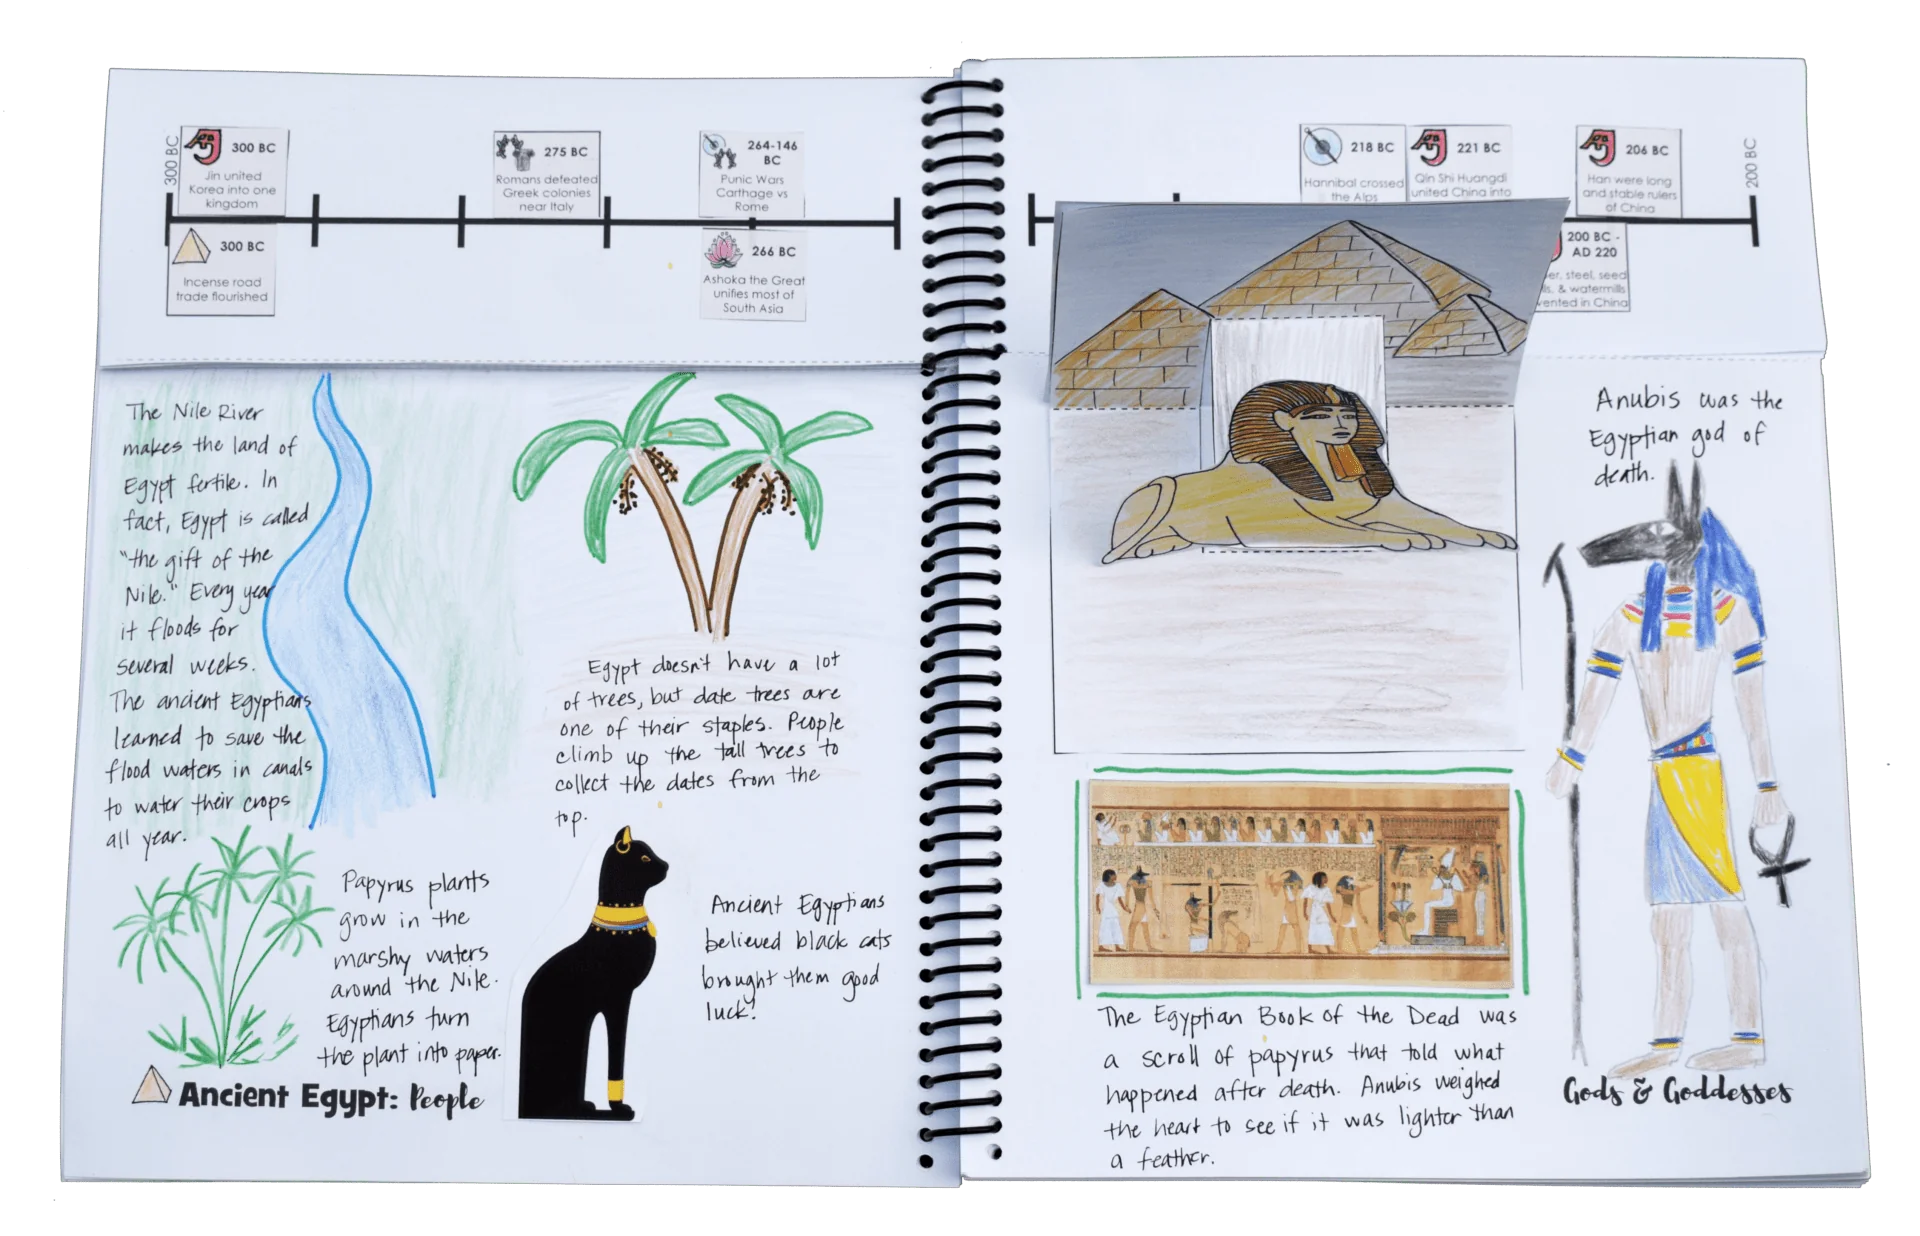 300 BC
300 BC
Jin united
Korea into one
kingdom
275 BC
Romans defeated
Greek colonies
near Italy
264-146
BC
Punic Wars
Carthage vs
Rome
300 BC
Incense road
trade flourished
266 BC
Ashoka the Great
unifies most of
South Asia
The Nile River
makes the land of
Egypt fertile. In
fact, Egypt is called
"the gift of the
Nile." Every year
it floods for
several weeks.
The ancient Egyptians
learned to save the
flood waters in canals
to water their crops
all year.
Egypt doesn't have a lot
of trees, but date trees are
one of their staples. People
climb up the tall trees to
collect the dates from the
top.
Papyrus plants
grow in the
marshy waters
around the Nile.
Egyptians turn
the plant into paper.
Ancient Egyptians
believed black cats
brought them good
luck!
Ancient Egypt: People
218 BC
Hannibal crossed
the Alps
221 BC
Qin Shi Huangdi
united China into
206 BC
Han were long
and stable rulers
of China
200 BC
200 BC -
AD 220
er, steel, seed
ls, & watermills
vented in China
Anubis was the
Egyptian god of
death.
The Egyptian Book of the Dead was
a scroll of papyrus that told what
happened after death. Anubis weighed
the heart to see if it was lighter than
a feather.
Gods & Goddesses